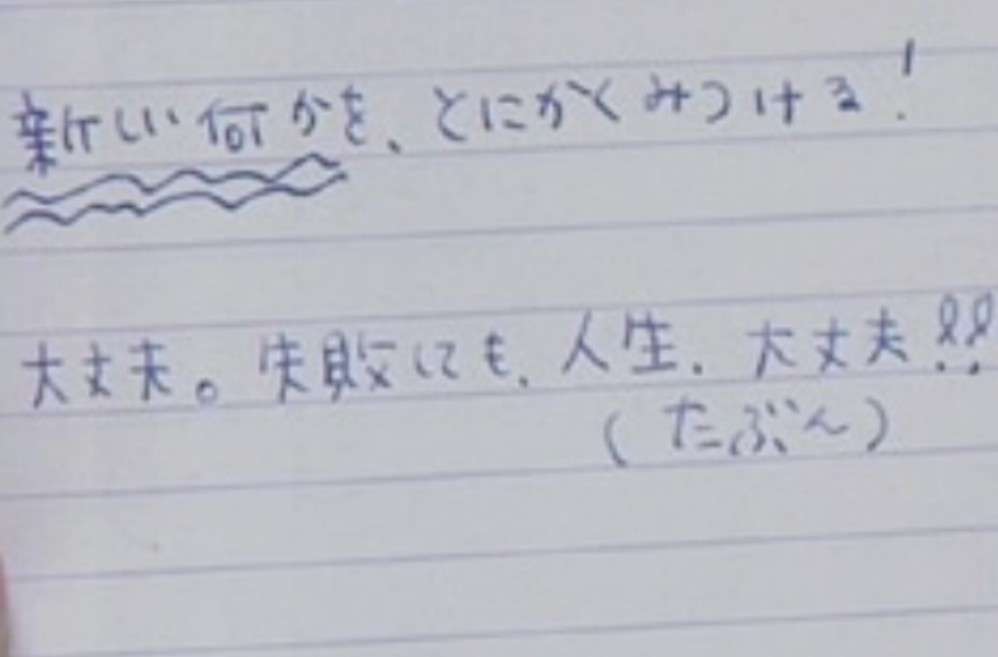 新しい何かを、とにかくみつける!
大丈夫。失敗しても、人生、大丈夫!!
(たぶん)